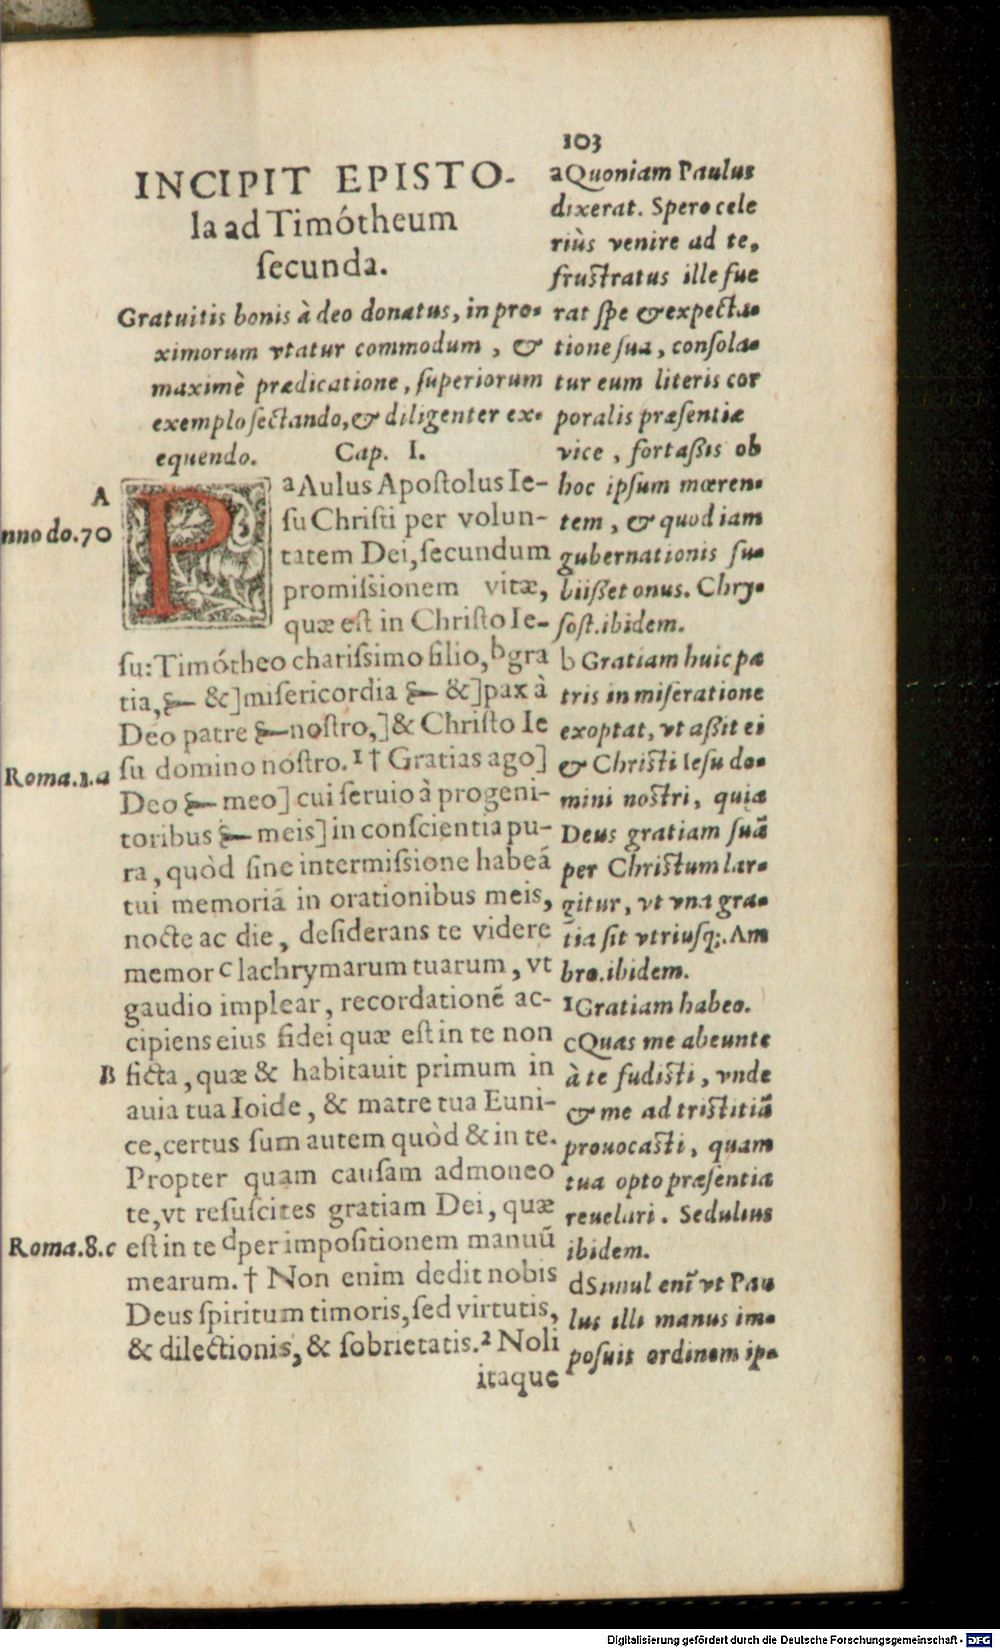 103
INCIPIT EPISTO-
la ad Timótheum
ſecunda.
Gratuitis bonis à deo donatus, in pro-
ximorum vtatur commodum, &
maximè prædicatione, ſuperiorum
exemplo ſectando, & diligenter ex-
equendo. Cap. I.
A
nno do.70
PaAulus Apoſtolus Ie-
ſu Chriſti per volun-
tatem Dei, ſecundum
promiſsionem vitæ,
quæ eſt in Chriſto Ie-
ſu: Timótheo chariſsimo filio, bgra
tia, &] miſericordia &] pax à
Deo patre noſtro,] & Chriſto Ie
Roma.1.a
ſu domino noſtro. 1 † Gratias ago]
Deo meo] cui ſeruio à progeni-
toribus meis] in conſcientia pu-
ra, quòd ſine intermiſsione habeã
tui memoriã in orationibus meis,
nocte ac die, deſiderans te videre
memor clachrymarum tuarum, vt
gaudio implear, recordationẽ ac-
cipiens eius fidei quæ eſt in te non
B
ficta, quæ & habitauit primum in
auia tua Ioide, & matre tua Euni-
ce, certus ſum autem quòd & in te.
Propter quam cauſam admoneo
te, vt reſuſcites gratiam Dei, quæ
Roma.8.c
eſt in te dper impoſitionem manuũ
mearum. † Non enim dedit nobis
Deus ſpiritum timoris, ſed virtutis,
& dilectionis, & ſobrietatis. 2 Noli
itaque
a Quoniam Paulus
dixerat. Spero cele
riùs venire ad te,
fruſtratus ille fue
rat ſpe & expecta-
tione ſua, conſola-
tur eum literis cor
poralis præſentiæ
vice, fortaßis ob
hoc ipſum mœren-
tem, & quod iam
gubernationis ſu-
biißet onus. Chry-
ſoſt. ibidem.
b Gratiam huic pa
tris in miſeratione
exoptat, vt aßit ei
& Chriſti Ieſu do-
mini noſtri, quia
Deus gratiam ſuã
per Chriſtum lar-
gitur, vt vna gra-
tia ſit vtriuſq;. Am
bro. ibidem.
1 Gratiam habeo.
c Quas me abeunte
à te fudiſti, vnde
& me ad triſtitiã
prouocaſti, quam
tua opto præſentia
reuelari. Sedulius
ibidem.
d Simul enĩ vt Pau
lus illi manus im-
poſuit ordinem ip-
Digitalisierung gefördert durch die Deutsche Forschungsgemeinschaft - DFG